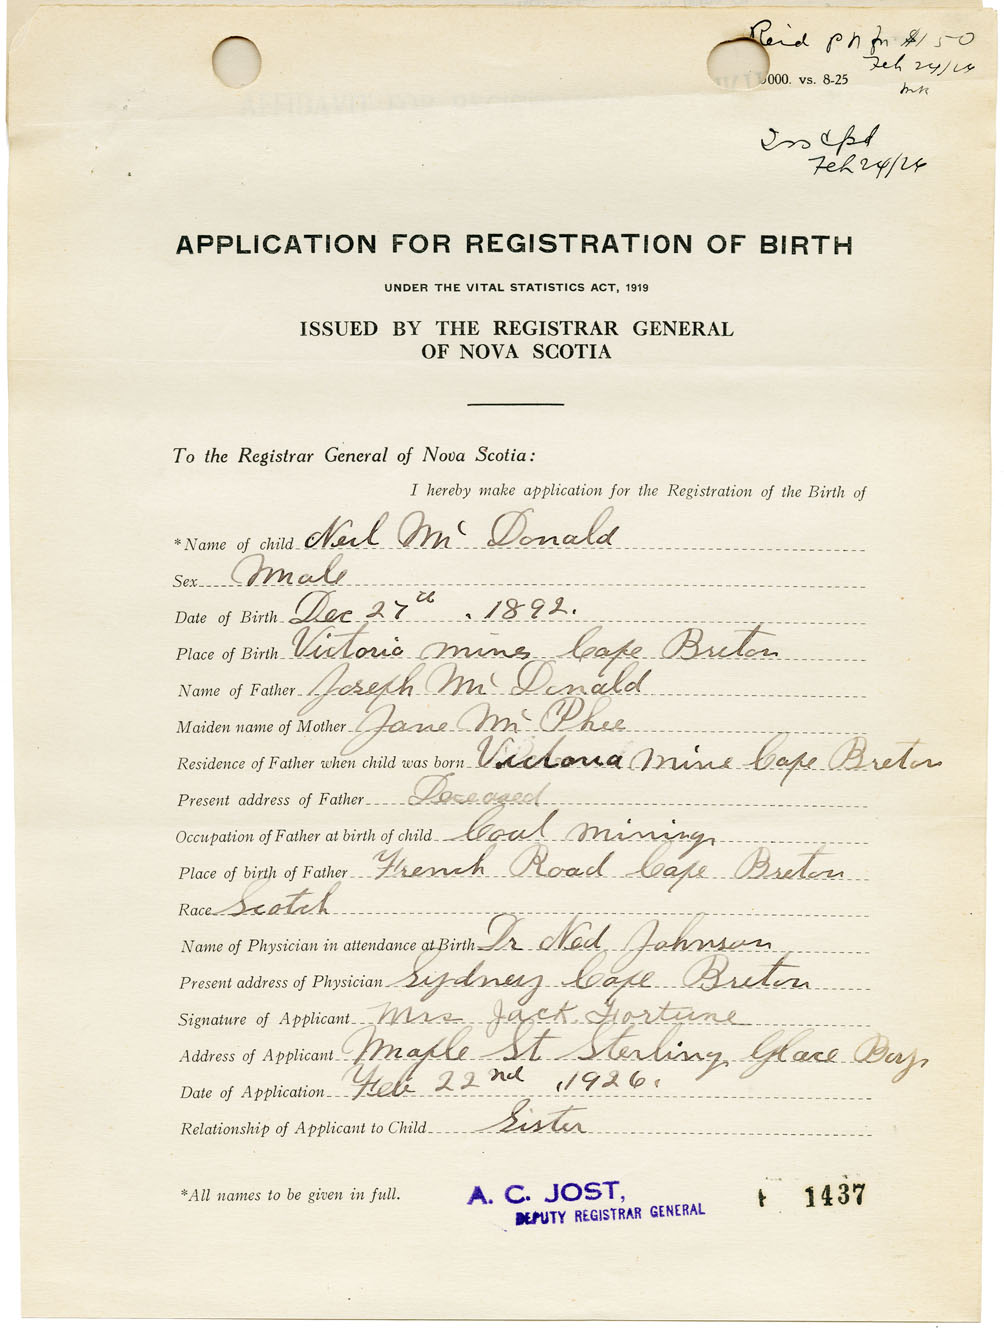 Rec'd P N for $1.50
Feb 24/26
000. vs. 8-25
MR
Iss cpd
Feb 24/26
APPLICATION FOR REGISTRATION OF BIRTH
UNDER THE VITAL STATISTICS ACT, 1919
ISSUED BY THE REGISTRAR GENERAL
OF NOVA SCOTIA
To the Registrar General of Nova Scotia:
I hereby make application for the Registration of the Birth of
*Name of child Neil Mc Donald
Sex Male
Date of Birth Dec 27th . 1892.
Place of Birth Victoria mines Cape Breton
Name of Father Joseph Mc Donald
Maiden name of Mother Jane Mc Phee
Residence of Father when child was born Victoria Mine Cape Breton
Present address of Father Deceased
Occupation of Father at birth of child Coal mining
Place of birth of Father French Road Cape Breton
Race Scotch
Name of Physician in attendance at Birth Dr Ned Johnson
Present address of Physician Sydney Cape Breton
Signature of Applicant Mrs Jack Fortune
Address of Applicant Maple St Sterling Glace Bay
Date of Application Feb 22nd , 1926.
Relationship of Applicant to Child Sister
*All names to be given in full.
A. C. JOST,
DEPUTY REGISTRAR GENERAL
1437